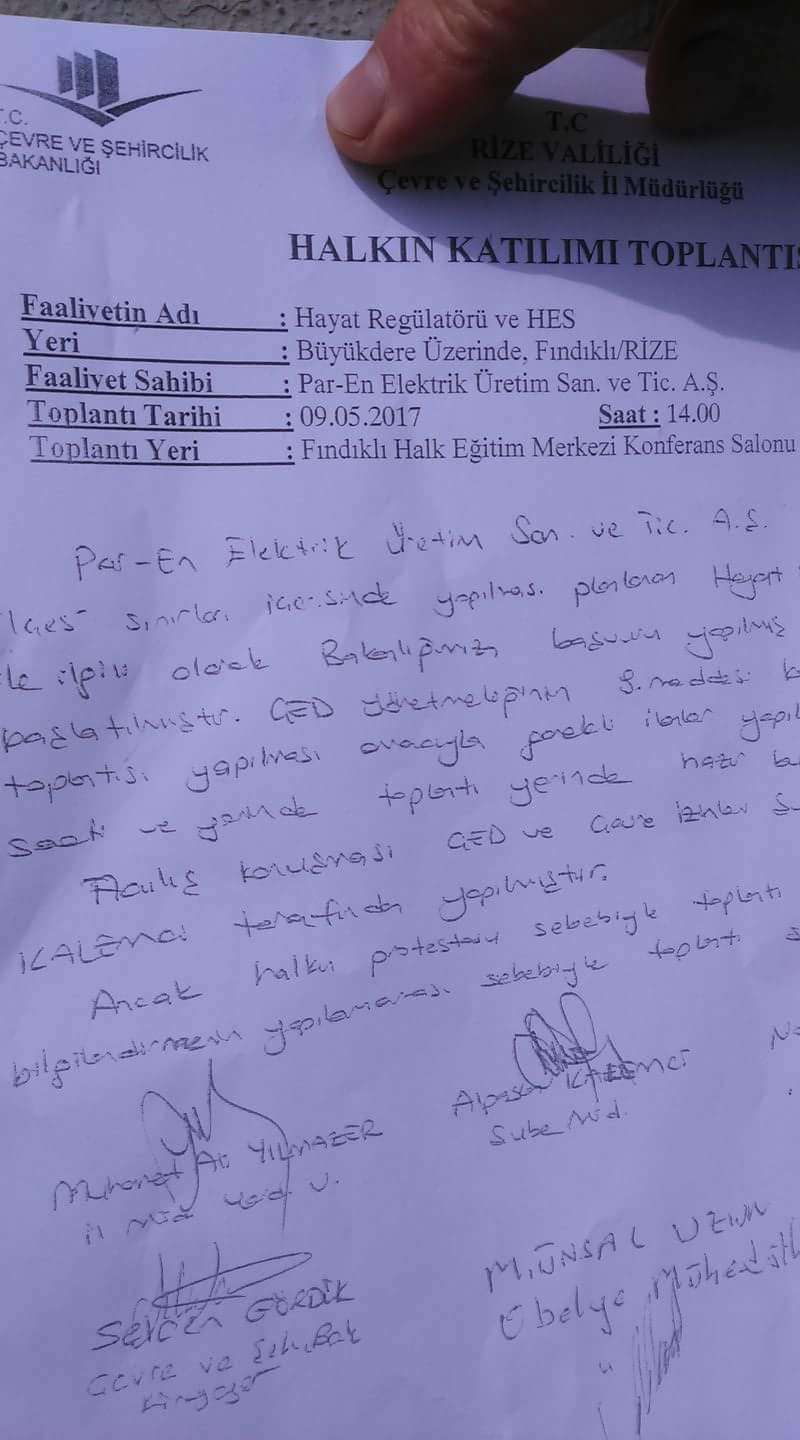 T.C.
ÇEVRE VE ŞEHİRCİLİK
BAKANLIĞI
T.C
RİZE VALİLİĞİ
Çevre ve Şehircilik İl Müdürlüğü
HALKIN KATILIMI TOPLANTIS
Faaliyetin Adı : Hayat Regülatörü ve HES
Yeri : Büyükdere Üzerinde, Fındıklı/RİZE
Faaliyet Sahibi : Par-En Elektrik Üretim San. ve Tic. A.Ş.
Toplantı Tarihi : 09.05.2017 Saat : 14.00
Toplantı Yeri : Fındıklı Halk Eğitim Merkezi Konferans Salonu
Par-En Elektrik Üretim San. ve Tic. A.Ş.
sınırları içerisinde yapılması planlanan Hayat
ile ilgili olarak Bakanlığımıza başvuru yapılmış
başlatılmıştır. ÇED yönetmeliğinin 9. maddesi
toplantısı yapılması amacıyla gerekli ilanlar
saat ve yerinde toplantı yerinde hazır
Açılış konuşması ÇED ve Çevre izinler
KALEMCİ tarafından yapılmıştır.
Ancak halkın protestosu sebebiyle toplantı
bilgilendirmenin yapılamaması sebebiyle toplantı
Muhammet Ali YILMAZER
İl Müd. Yard. V.
Alpaslan KALEMCİ
Şube Müd.
SEVCEN GÖRDİK
Çevre ve Şeh. Bak
Kimyager
M. ÜNSAL UZUN